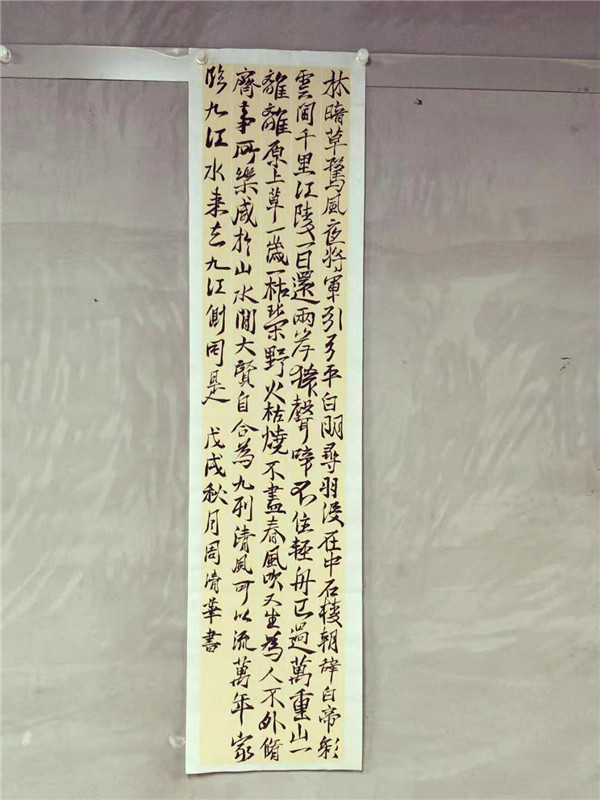 林暗草驚風夜將軍引弓平白朋尋羽没在中石棱朝辞白帝彩
雲間千里江陵一日還兩岸猿聲啼不住輕舟已過萬重山一
離離原上草一歲一枯榮野火枯燒不盡春風吹又生為人不外脩
齊事所樂咸於山水間大賢自合為九列清風可以流萬年家
臨九江水来去九江側同是 戊戌秋月周清華書